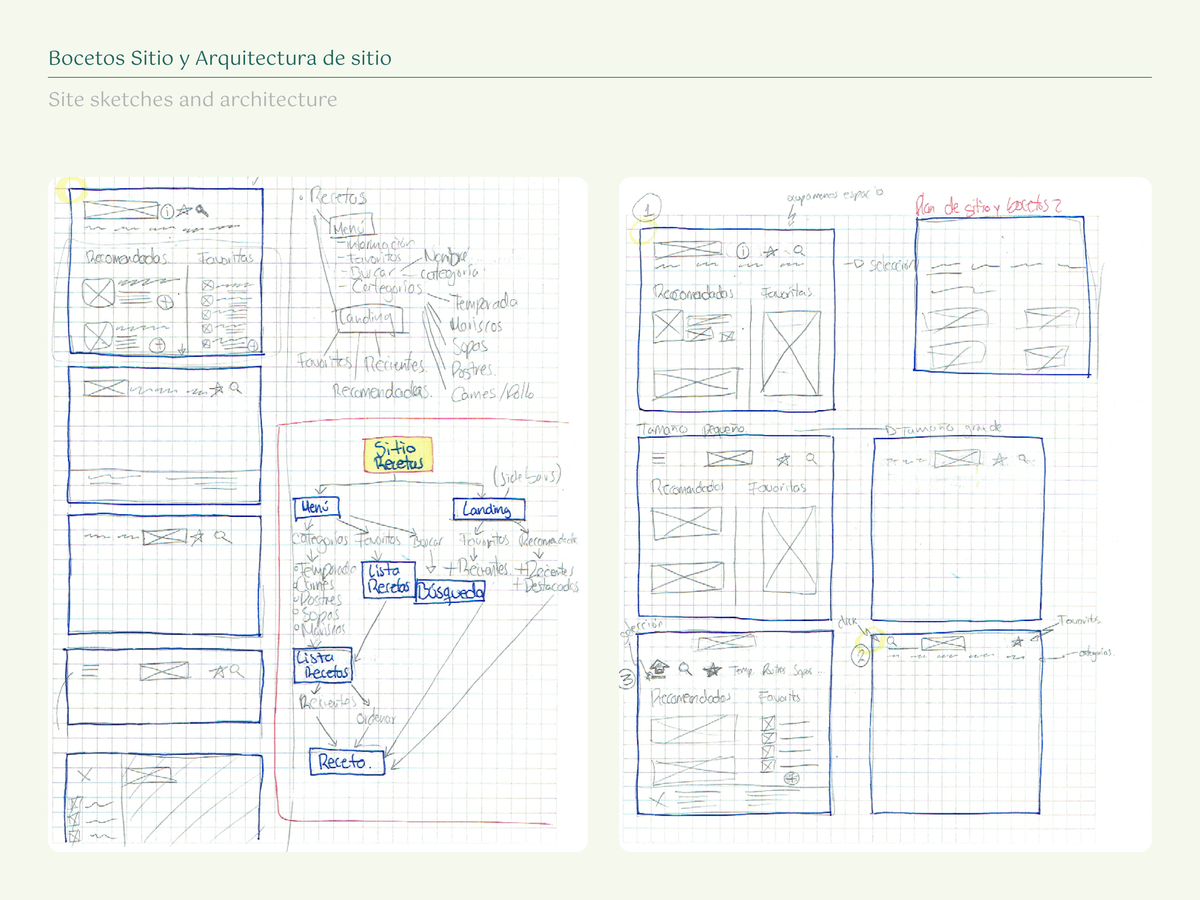 Bocetos Sitio y Arquitectura de sitio
Site sketches and architecture
Recomendadas
Favoritas
Recetas
Menú
- Información
- Favoritos
- Buscar
- Categorías
Nombre
categoría
Temporada
Mariscos
Sopas
Postres.
Carnes/Pollo
Landing
Favoritos
Recientes.
Recomendadas.
Sitio
Recetas
(sidebars)
Menú
Landing
Categorías
Favoritos
Buscar
Favoritos
Recomendada
Temporada
Carnes
Postres
Sopas
Mariscos
Lista
Recetas
Búsqueda
+ Recientes.
+ Recientes
+ Destacados
Lista
Recetas
Recientes
Ordenar
Receta.
1
Plan de sitio y bocetos 2
Recomendados
Favoritas.
selección
Tamaño pequeño.
Tamaño grande
Recomendadas
Favoritas
3
Temp. Postres Sopas ...
Recomendadas
Favoritas
click
2
Favoritos
categorías.